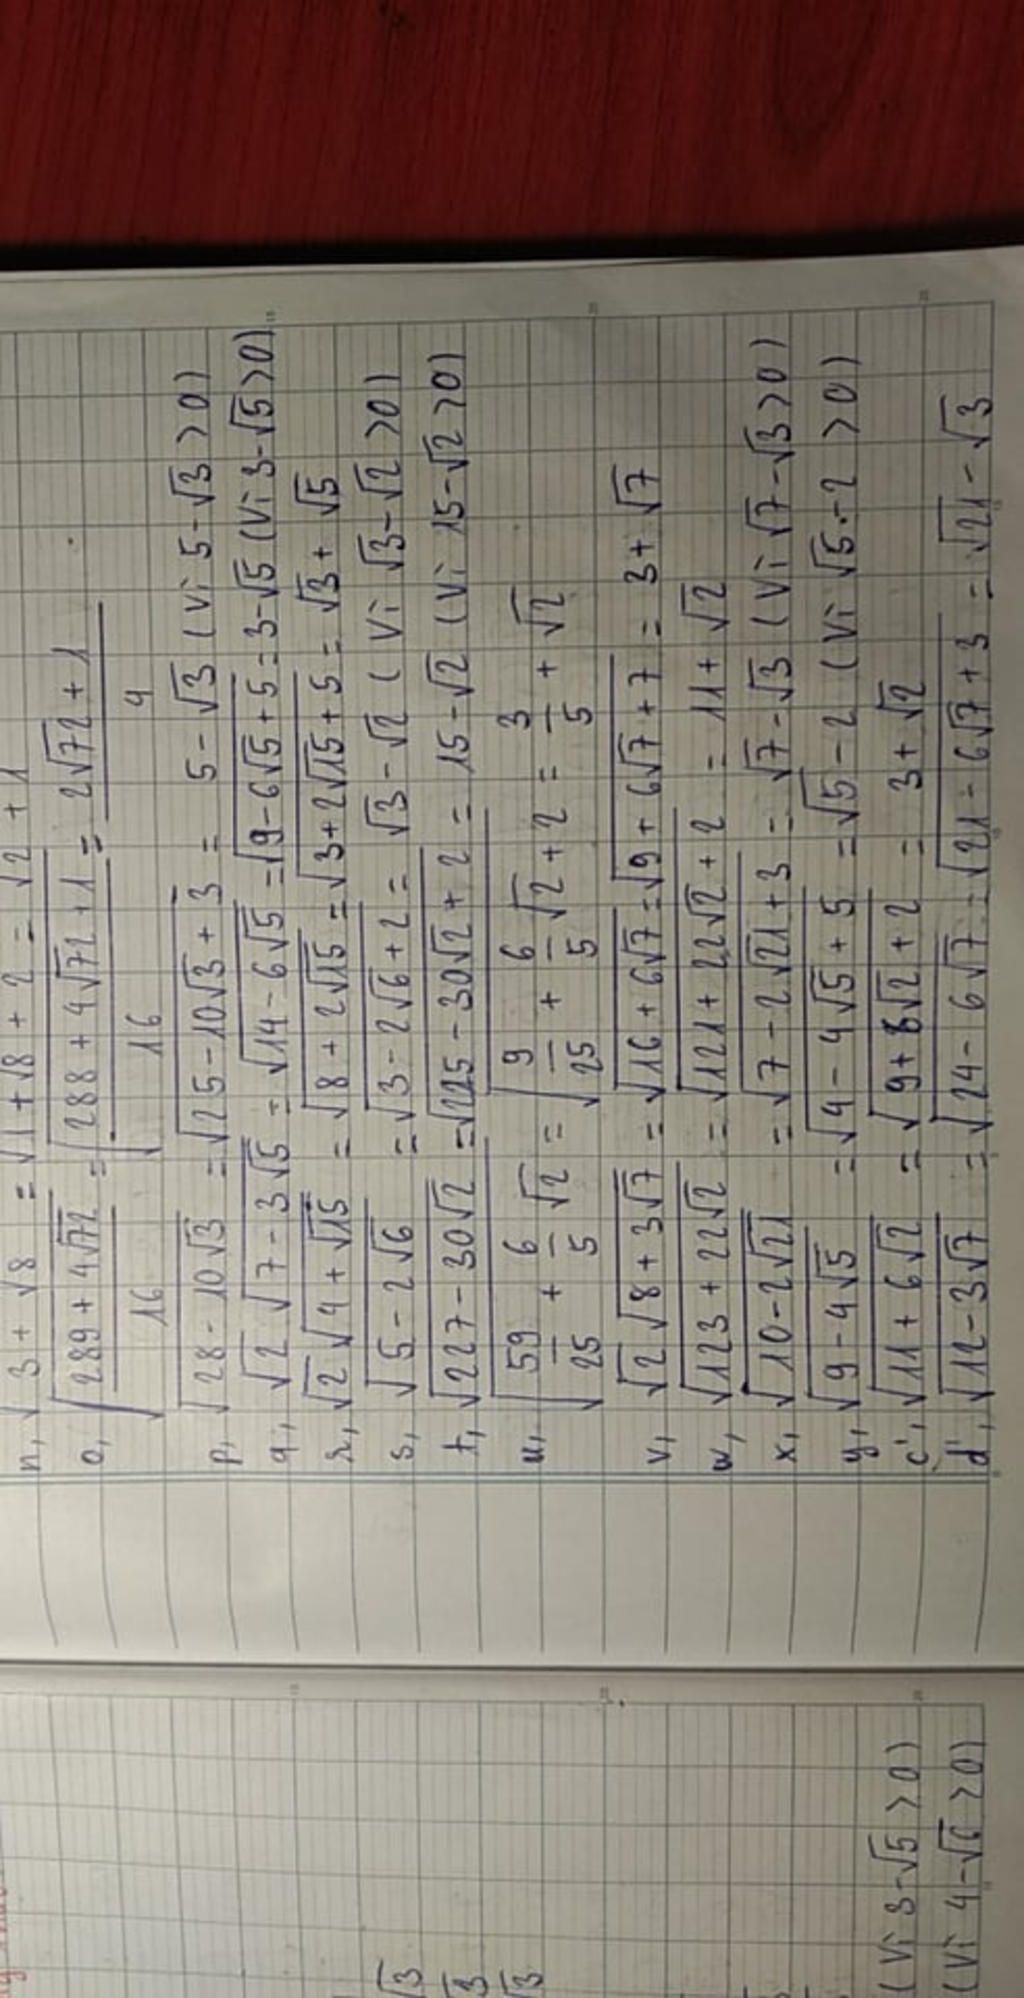 n, √3 + √8 = √1 + √8 + 2 = √2 + 1
o, √(289 + 4√72)/16 = √(288 + 4√72 + 1)/16 = (2√72 + 1)/4
p, √28 - 10√3 = √25 - 10√3 + 3 = 5 - √3 (Vì 5 - √3 > 0)
q, √2 √7 - 3√5 = √14 - 6√5 = √9 - 6√5 + 5 = 3 - √5 (Vì 3 - √5 > 0)
r, √2 √4 + √15 = √8 + 2√15 = √3 + 2√15 + 5 = √3 + √5
s, √5 - 2√6 = √3 - 2√6 + 2 = √3 - √2 (Vì √3 - √2 > 0)
t, √227 - 30√2 = √225 - 30√2 + 2 = 15 - √2 (Vì 15 - √2 > 0)
u, √59/25 + 6/5 √2 = √9/25 + 6/5 √2 + 2 = 3/5 + √2
v, √2 √8 + 3√7 = √16 + 6√7 = √9 + 6√7 + 7 = 3 + √7
w, √123 + 22√2 = √121 + 22√2 + 2 = 11 + √2
x, √10 - 2√21 = √7 - 2√21 + 3 = √7 - √3 (Vì √7 - √3 > 0)
y, √9 - 4√5 = √4 - 4√5 + 5 = √5 - 2 (Vì √5 - 2 > 0)
c', √11 + 6√2 = √9 + 6√2 + 2 = 3 + √2
d', √12 - 3√7 = √24 - 6√7 = √21 - 6√7 + 3 = √21 - √3
√3
√3
√3
(Vì 3 - √5 > 0)
(Vì 4 - √6 > 0)